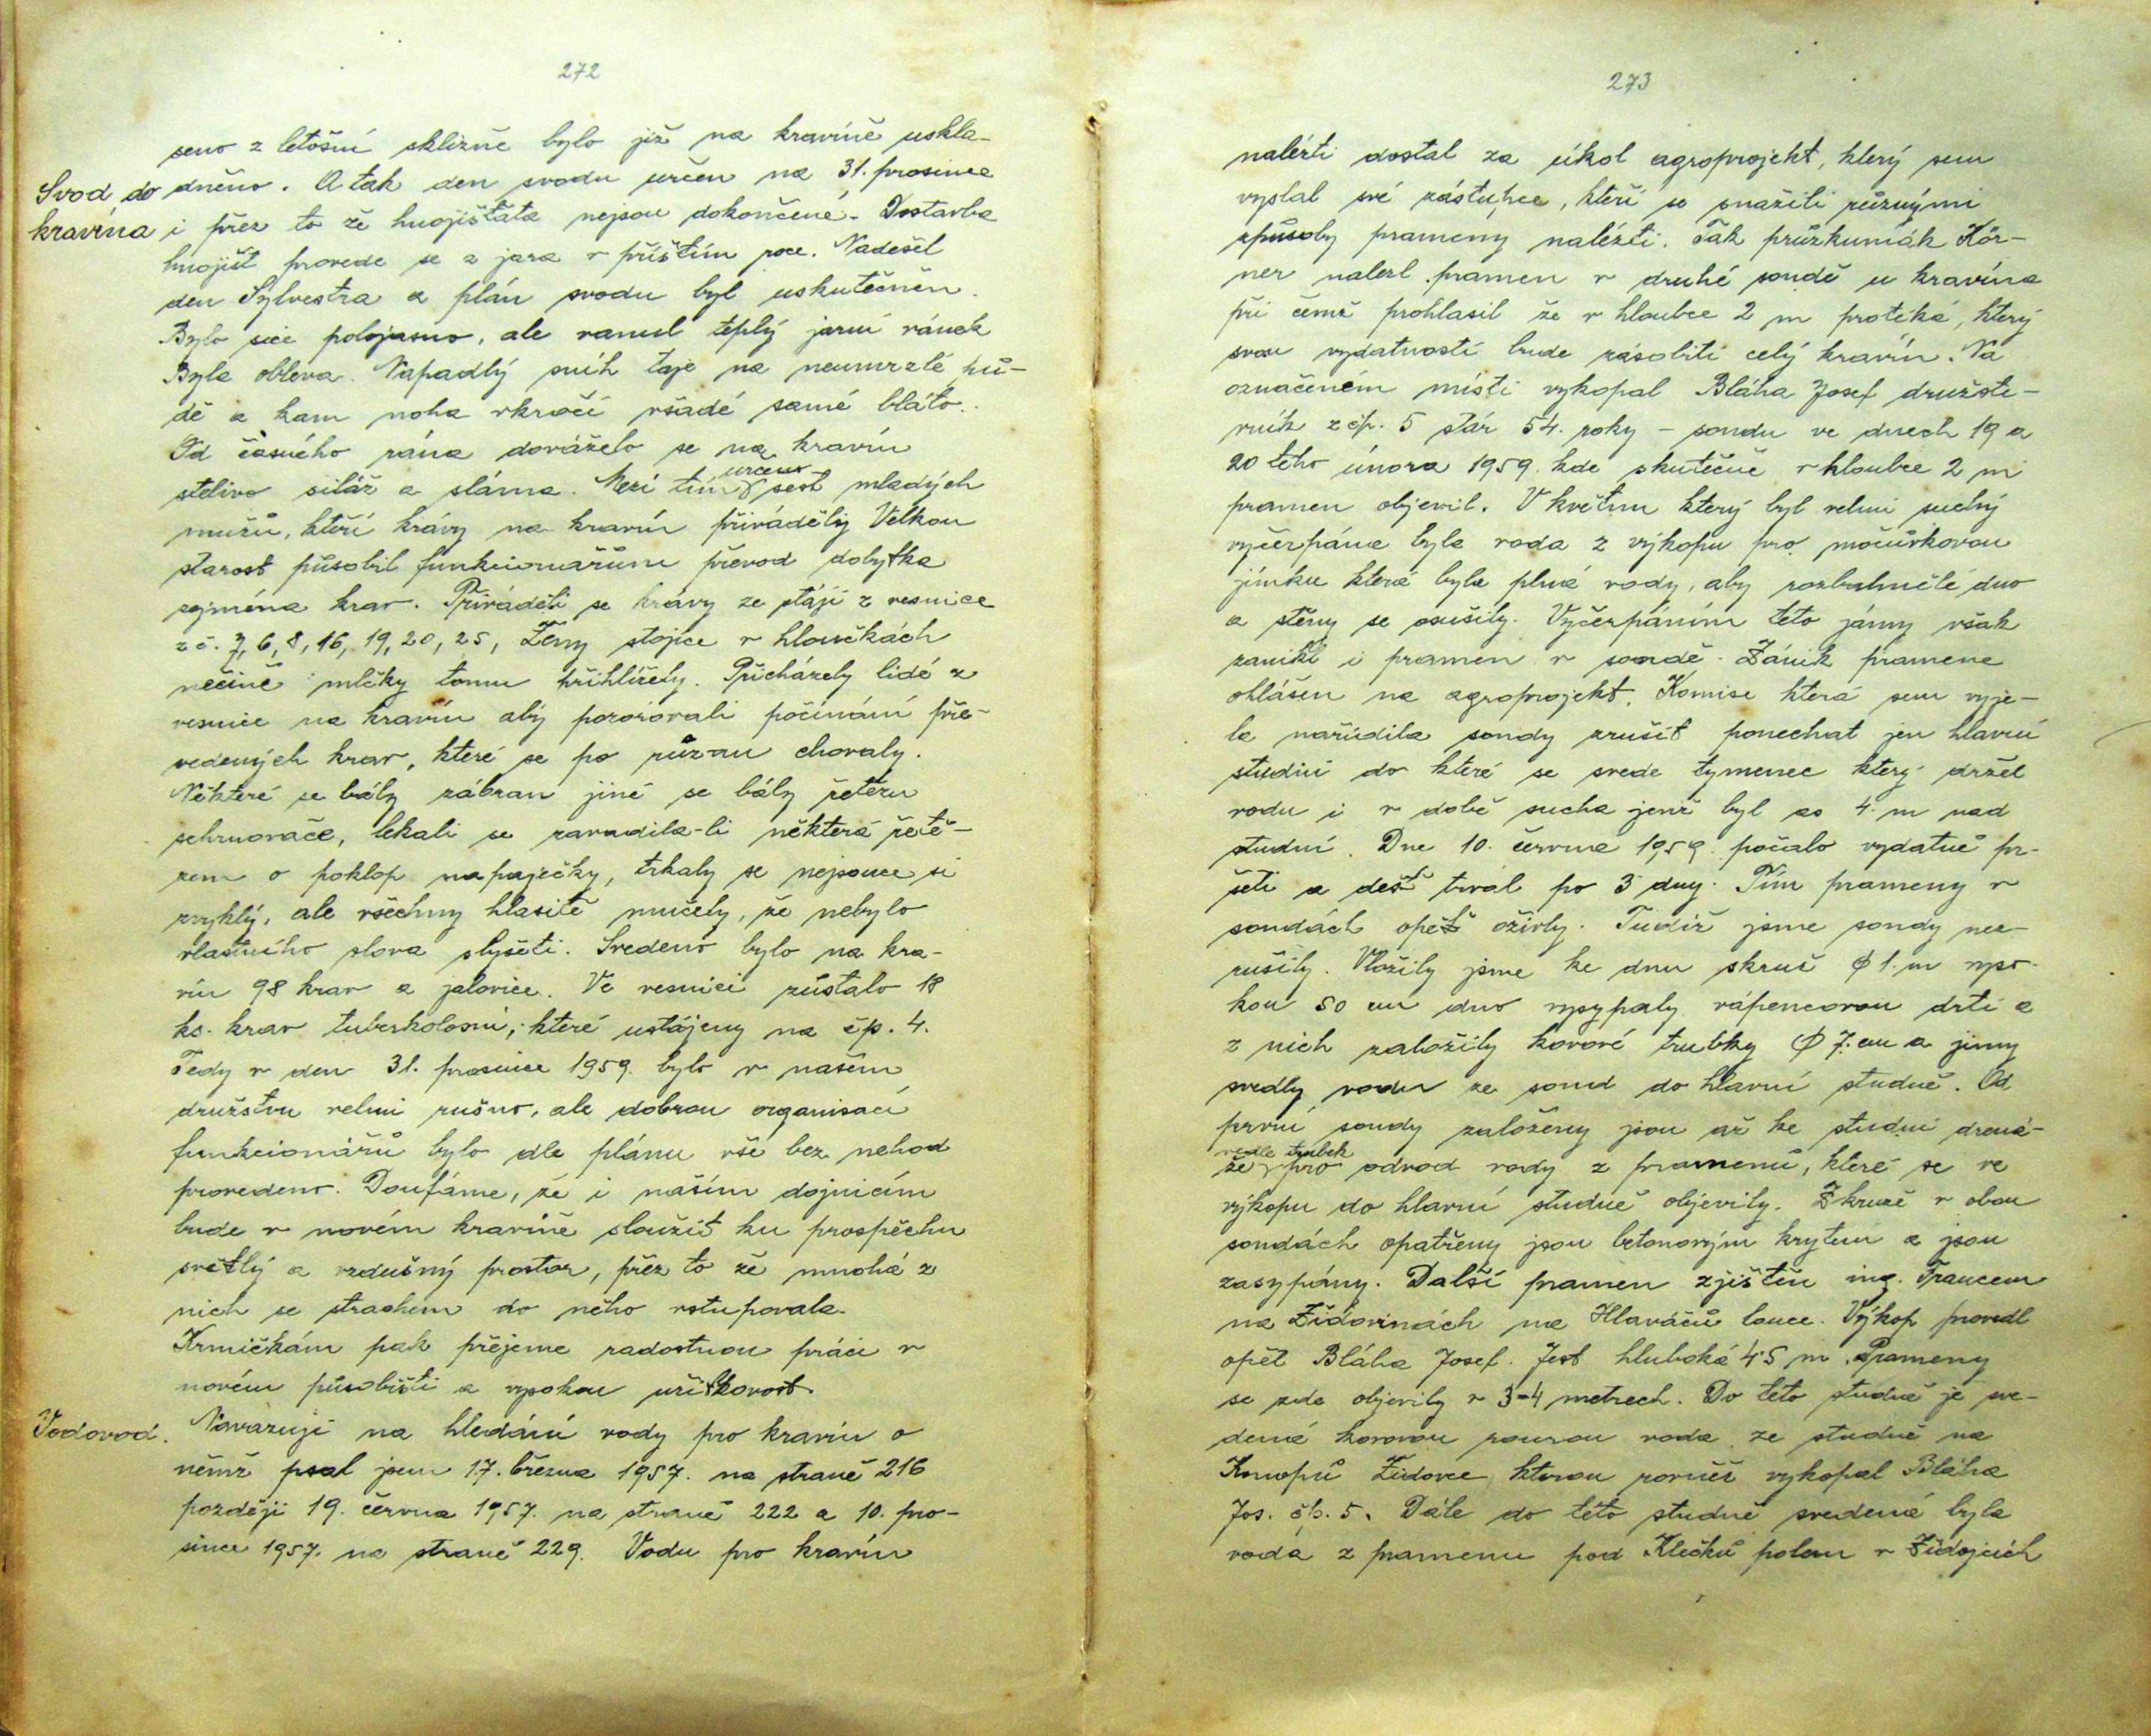 272
seno z letošní sklizně bylo již na kravíně uskla-
Svod do dněno. A tak den svodu určen na 31. prosince
kravína i přez to že hnojišťata nejsou dokončené. Dostavba
hnojišť provede se z jara v příštím roce. Nadešel
den Sylvestra a plán svodu byl uskutečněn.
Bylo sice polojasno, ale vanul teplý jarní vánek
Byla obleva. Napadlý sníh taje na neumrzlé pů-
dě a kam noha vkročí všadé samé bláto.
Od časného rána dováželo se na kravín
stelivo siláž a sláma. Mezi tím určeno šest mladých
mužů, kteří krávy na kravín přiváděly. Velkou
starost působil funkcionářům převod dobytka
zejména krav. Přiváděli se krávy ze stájí z vesnice
z č. 7, 6, 8, 16, 19, 20, 25, Ženy stojíce v hloučkách
nečině mlčky tomu přihlížely. Přicházely lidé z
vesnice na kravín aby pozorovali počínání pře-
vedených krav, které se po různu chovaly.
Některé se bály zábran jiné se bály řetězu
schrnovače, lekali se zavadila-li některá řetě-
zem o poklop napaječky, trkaly se nejsouce si
zvyklý, ale všechny hlasitě mučely, že nebylo
vlastního slova slyšeti. Svedeno bylo na kra-
vín 98 krav a jalovice. Ve vesnici zůstalo 18
ks. krav tuberkolosní, které ustájeny na čp. 4.
Tedy v den 31. prosince 1959. bylo v našem
družstvu velmi rušno, ale dobrou organisací
funkcionářů bylo dle plánu vše bez nehod
provedeno. Doufáme, že i naším dojnicím
bude v novém kravíně sloužit ku prospěchu
světlý a vzdušný prostor, přez to že mnohá z
nich se strachem do něho vstupovala.
Krmičkám pak přejeme radostnou práci v
novém působišti a vysokou užitkovost.
Vodovod. Navazuji na hledání vody pro kravín o
němž psal jsem 17. března 1957. na straně 216
později 19. června 1957. na straně 222 a 10. pro-
since 1957. na straně 229. Vodu pro kravín
273
nalézti dostal za úkol agroprojekt, který sem
vyslal své zástupce, kteří se snažili různými
způsoby prameny nalézti. Tak průzkumák Kör-
ner nalezl pramen v druhé sondě u kravína
při čemž prohlasil že v hloubce 2 m protéká, který
svou vydatností bude zásobiti celý kravín. Na
označeném místi vykopal Bláha Josef družste-
vník z čp. 5 stár 54. roky – sondu ve dnech 19 a
20 tého února 1959. kde skutečně v hloubce 2 m
pramen objevil. V květnu který byl velmi suchý
vyčerpána byla voda z výkopu pro močůvkovou
jímku která byla plná vody, aby rozbahnělé dno
a stěny se osušily. Vyčerpáním této jámy však
zanikl i pramen v sondě. Zánik pramene
ohlášen na agroprojekt. Komise která sem vyje-
la nařídila sondy zrušit ponechat jen hlavní
studni do které se svede tymenec který držel
vodu i v době sucha jenž byl as 4. m nad
studní. Dne 10. června 1959. počalo vydatně pr-
šeti a dešť trval po 3 dny. Tím prameny v
sondách opět ožívly. Tudíž jsme sondy nez-
rušily. Vložily jsme ke dnu skruž ϕ 1. m vyso-
kou 50 cm dno vysypaly vápencovou drtí a
z nich založily kovové trubky ϕ 7. cm a jimy
svedly vodu ze sond do hlavní studně. Od
první sondy založeny jsou až ke studni drená-
že vedle trubek pro odvod vody z pramenů, které se ve
výkopu do hlavní studně objevily. Skruže v obou
sondách opatřeny jsou betonovým krytem a jsou
zasypány. Další pramen zjištěn ing. Francem
na Židovinách na Hlaváčů louce. Výkop provedl
opět Bláha Josef. Jest hluboká 4·5 m. Prameny
se zde objevily v 3-4 metrech. Do této studně je sve-
dená kovovou rourou voda ze studně na
Konopů Židovce kterou rovněž vykopal Bláha
Jos. čp. 5. Dále do této studně svedená byla
voda z pramenu pod Klečků polem v Židojcích